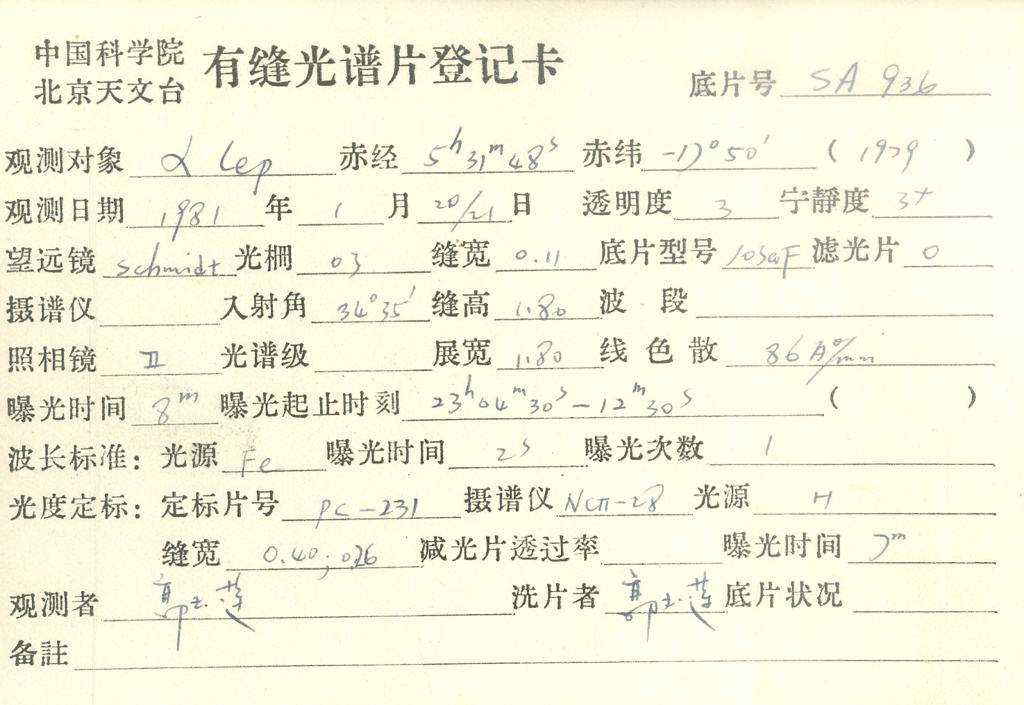 中国科学院 有缝光谱片登记卡
北京天文台 底片号 SA 936
观测对象 α Lep 赤经 5h31m48s 赤纬 -17°50′ (1979)
观测日期 1981 年 1 月 20/21 日 透明度 3 宁静度 3+
望远镜 Schmidt 光栅 03 缝宽 0.11 底片型号 103aF 滤光片 0
摄谱仪 入射角 34°35′ 缝高 1.80 波段
照相镜 II 光谱级 展宽 1.80 线色散 86Å/mm
曝光时间 8m 曝光起止时刻 23h04m30s-12m30s ( )
波长标准: 光源 Fe 曝光时间 2s 曝光次数 1
光度定标: 定标片号 PC-231 摄谱仪 NCП-28 光源 H
缝宽 0.40; 0.26 减光片透过率 曝光时间 7m
观测者 郭玉莲 洗片者 郭玉莲 底片状况
备註